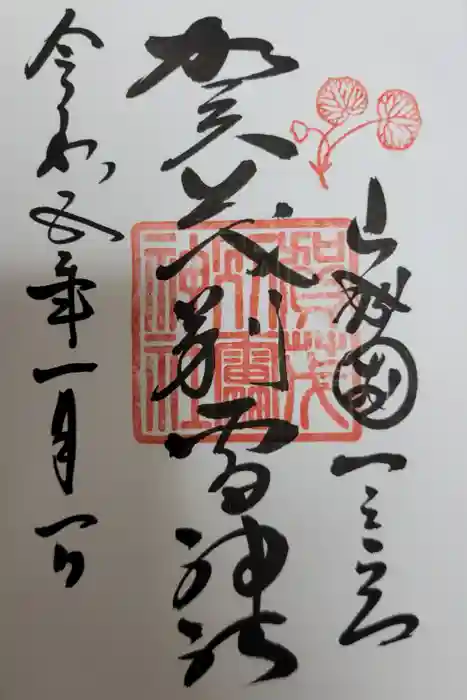 山城国一之宮
賀茂別雷神社
賀茂別雷神社
令和五年一月一日